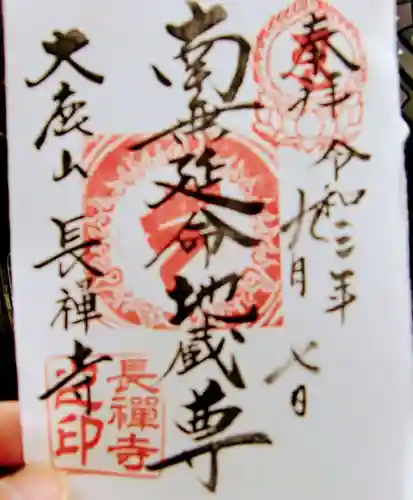 奉拝
令和三年
九月七日
南無延命地蔵尊
大鹿山
長禅寺
長禪寺
印